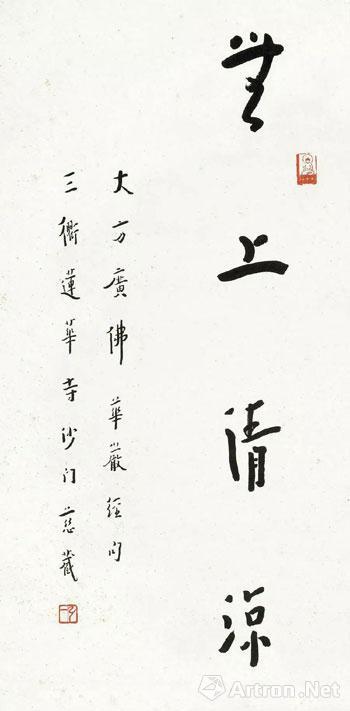 無上清涼
大方廣佛華嚴經句
三衢蓮華寺沙门慈藏
Artron.Net